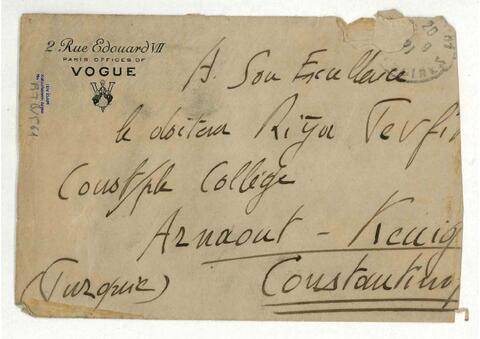 2 Rue Edouard VII
PARIS OFFICES OF
VOGUE
A. Son Excellence
le docteur Riza Tevfi
Constple College
Arnaout - Keuig
(Turquie)
Constantinop